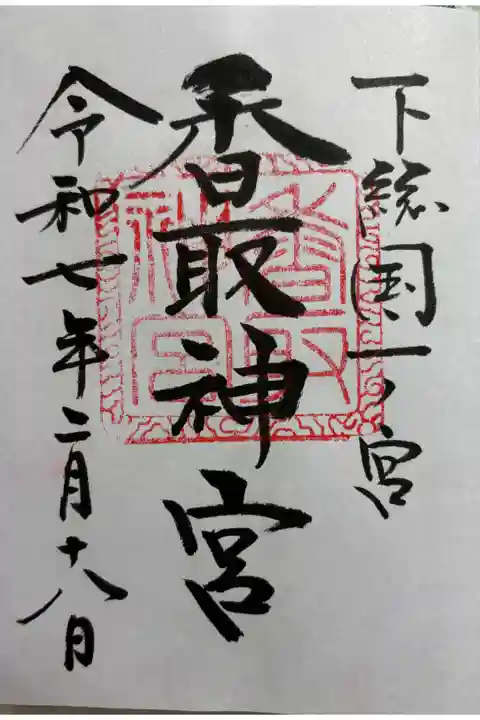 下総国一ノ宮
香取神宮
香取
神宮
令和七年二月十八日